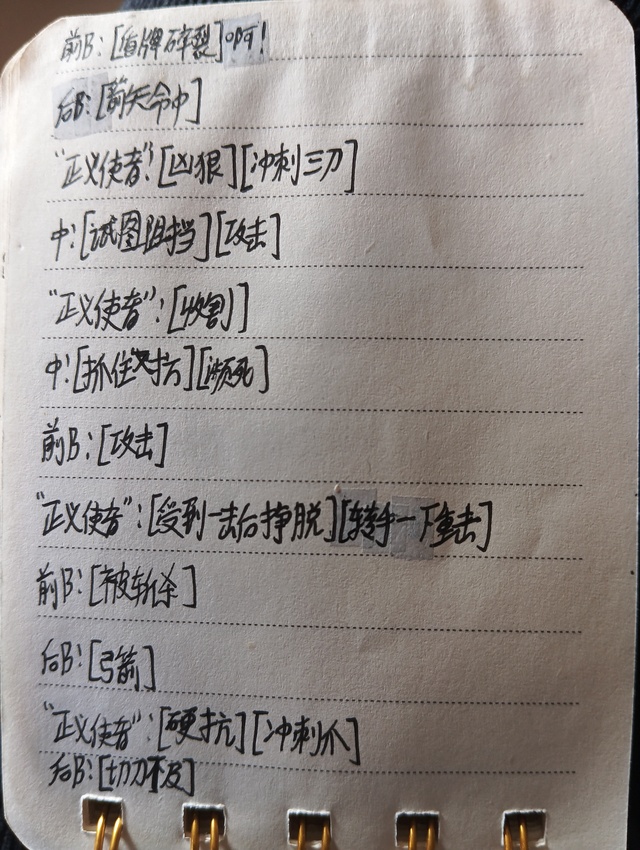 前B:[盾牌碎裂]啊!
后B:[箭矢命中]
"正义使者":[凶狠][冲刺三刀]
中:[试图阻挡][攻击]
"正义使者":[收割]
中:[抓住对抗][濒死]
前B:[攻击]
"正义使者":[受到一击后挣脱][转手一下重击]
前B:[被斩杀]
后B:[弓箭]
"正义使者":[硬抗][冲刺爪]
后B:[切刀不及]